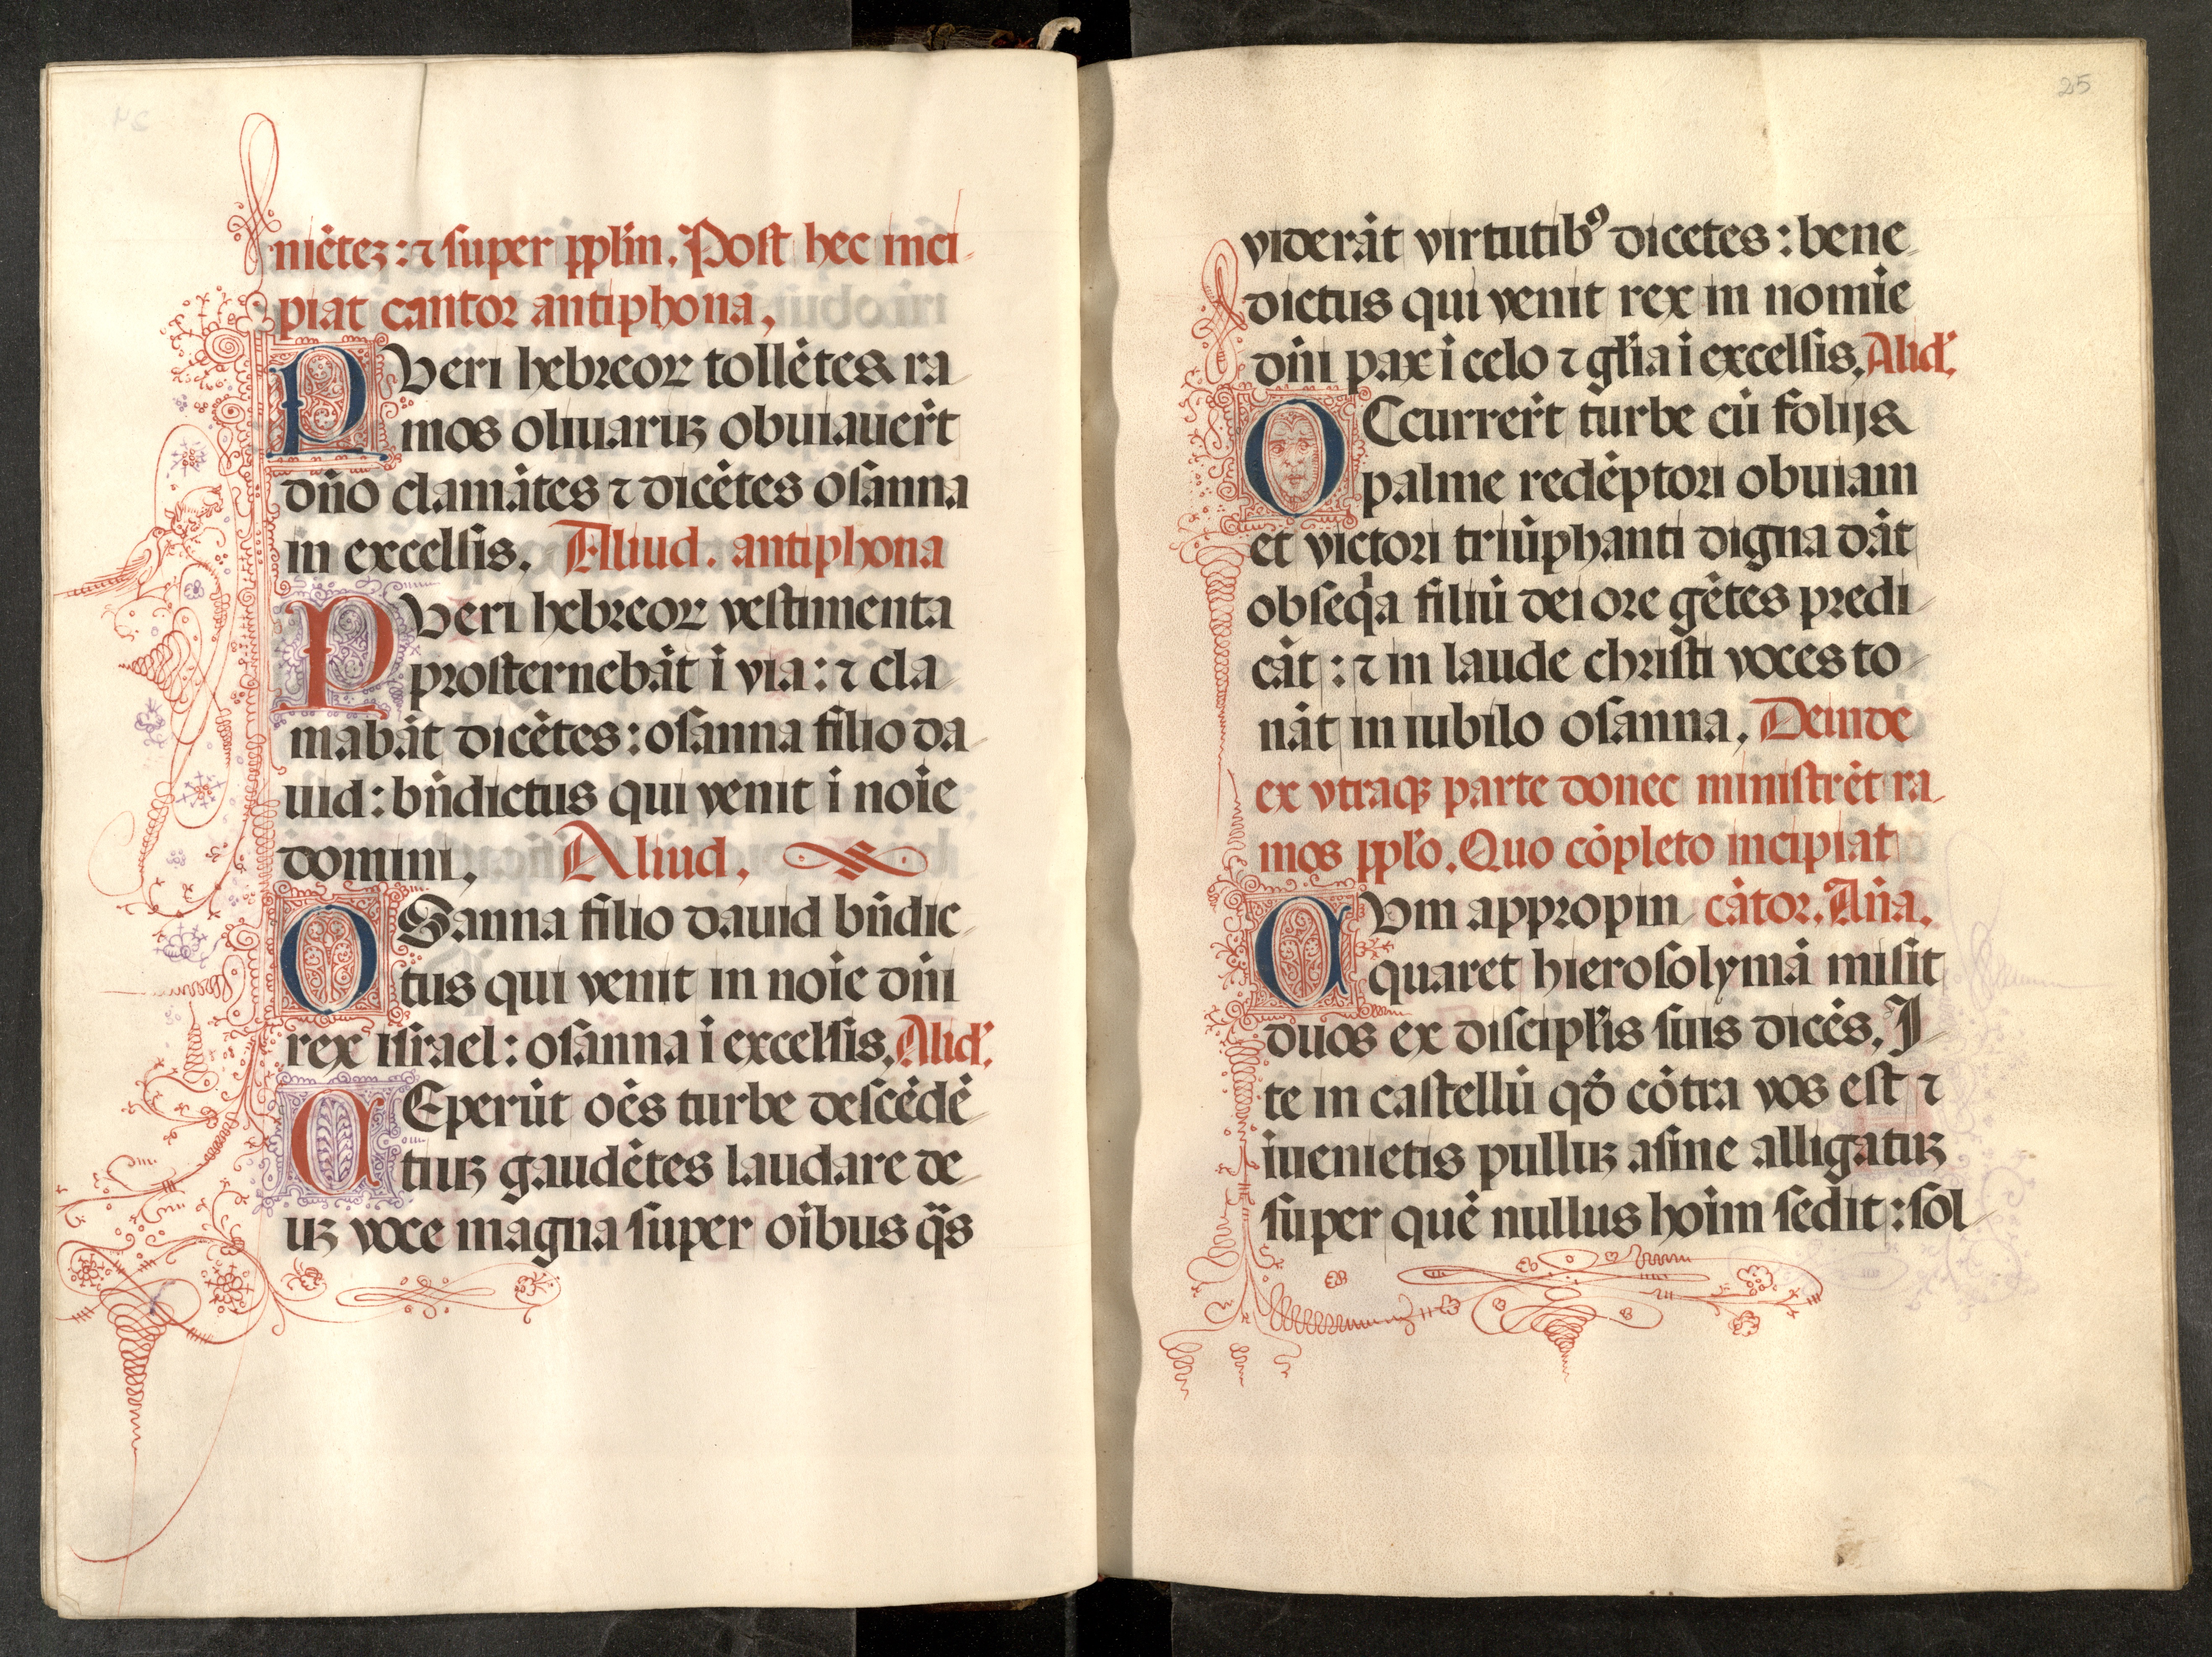 niētez: ⁊ super pplm̄. Post hec inci-
piat cantor antiphona.
PVeri hebreoꝝ tollētes ra-
mos oliuaruꝫ obuiauer̄t
dn̄o clamātes ⁊ dicētes osāna
in excelsis. Aliud. antiphona
PVeri hebreoꝝ vestimenta
prosternebāt ī via: ⁊ cla-
mabāt dicētes: osanna filio da-
uid: bn̄dictus qui venit ī noīe
domini. Aliud.
OSanna filio dauid bn̄dic-
tus qui venit in noīe dn̄i
rex israel: osānna ī excelsis. Aliđ.
CEperūt oēs turbe descēdē-
tiuꝫ gaudētes laudare de-
uꝫ voce magna super oībus q̄s
25
viderāt virtutibꝰ dicētes: bene-
dictus qui venit rex in nomīe
dn̄i pax ī celo ⁊ gl̄ia ī excelsis. Aliđ.
OCcurrer̄t turbe cū folijs
palme redēptori obuiam
et victori triūphanti digna dāt
obseq̄a filiū dei ore gētes predi-
cāt: ⁊ in laude christi voces to-
nāt in iubilo osanna. Deinde
ex vtraqꝫ parte donec ministrēt ra-
mos ppl̄o. Quo cōpleto incipiat
CVm appropin- cātor. An̄a.
quaret hierosolymā misit
duos ex discipl̄is suis dicēs. I-
te in castellū qđ cōtra vos est ⁊
īuenietis pulluꝫ asine alligatuꝫ
super quē nullus hoīm sedit: sol-